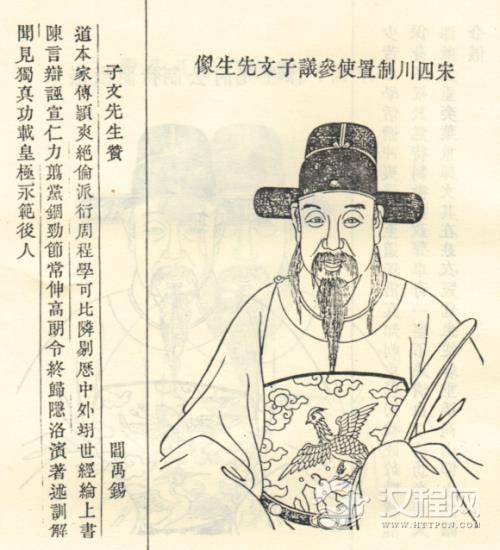 宋四川制置使參議子文先生像
子文先生贊
閻禹錫
道本家傳穎爽絕倫派衍周程學可比隣剔歷中外翊世經綸上書
陳言辯誣宣仁力翦黨錮勁節常伸高朗令終歸隱洛濱著述訓解
聞見獨真功載皇極永範後人
汉程网
WWW.HTTPCN.COM